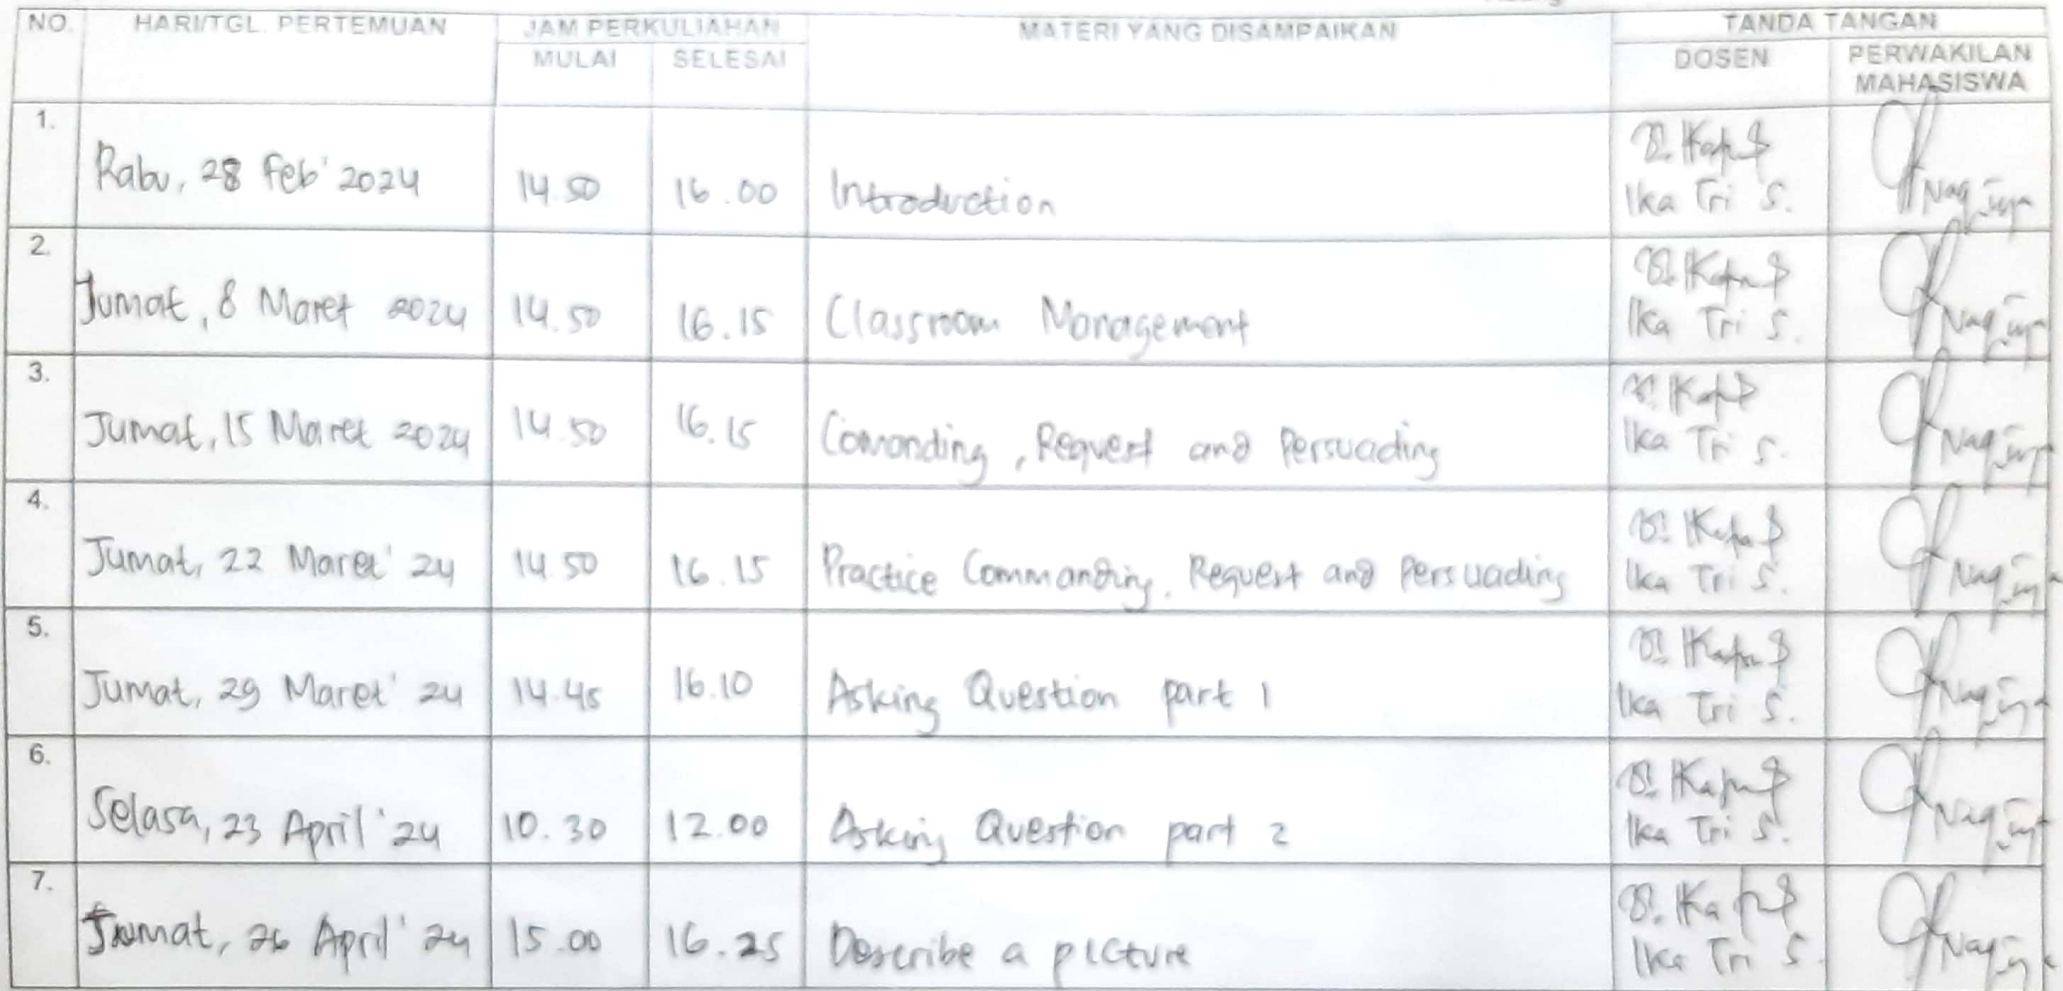 NO. HARI/TGL. PERTEMUAN JAM PERKULIAHAN MATERI YANG DISAMPAIKAN TANDA TANGAN
MULAI SELESAI DOSEN PERWAKILAN
MAHASISWA
1. Rabu, 28 Feb' 2024 14.50 16.00 Introduction
Ika Tri S.
2. Jumat, 8 Maret 2024 14.50 16.15 Classroom Management
Ika Tri S.
3. Jumat, 15 Maret 2024 14.50 16.15 Comanding, Request and Persuading
Ika Tri S.
4. Jumat, 22 Maret' 24 14.50 16.15 Practice Commanding, Request and Persuading
Ika Tri S.
5. Jumat, 29 Maret' 24 14.45 16.10 Asking Question part 1
Ika Tri S.
6. Selasa, 23 April '24 10.30 12.00 Asking Question part 2
Ika Tri S.
7. Jumat, 26 April' 24 15.00 16.25 Describe a picture
Ika Tri S.